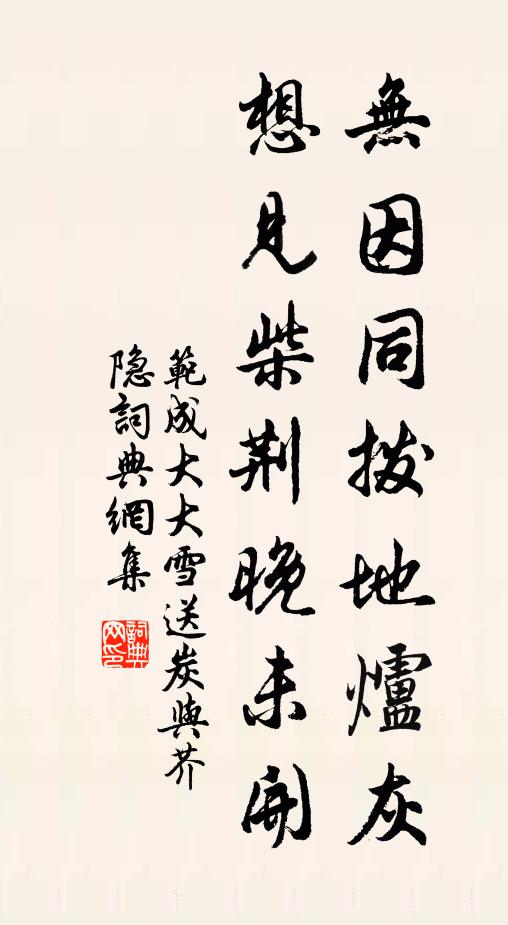 無因同拨地爐灰
想見柴荆晚未開
範成大大雪送炭與芥
隐詞典網集
詞典
网印